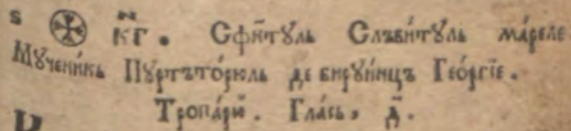 ѕ ⊕ к҃г. Сфи́нтꙋль Слъви́тꙋль ма́реле
Мꙋчени́кь Пꙋртъто́рюль де бирꙋи́нцъ Гео́ргїе.
Тропа́рю҆. Гла́сь, д҃.